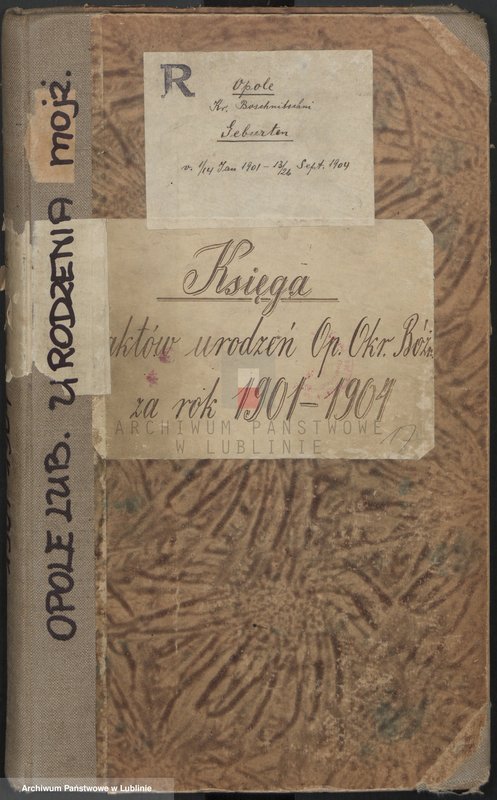 OPOLE LUB. URODZENIA MOJŻ.
R
Opole
Kr. Boschnitschni
Geburten
v. 1/14 Jan 1901 – 13/26 Sept. 1904
Księga
aktów urodzeń Op. Okr. Bóżn.
za rok 1901–1904
17
ARCHIWUM PAŃSTWOWE
W LUBLINIE
Archiwum Państwowe w Lublinie